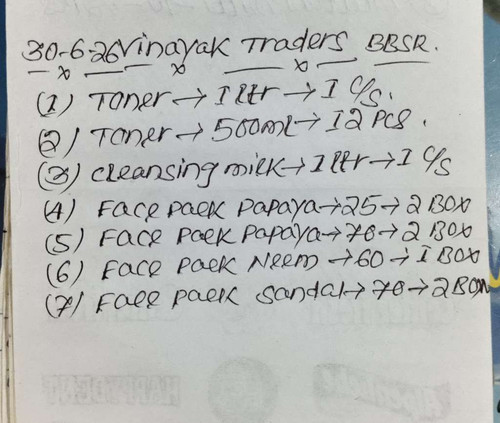 30-6-26 Vinayak Traders BBSR.
(1) Toner → 1 ltr → 1 C/S.
(2) Toner → 500ml → 12 Pcs.
(3) cleansing milk → 1 ltr → 1 C/S
(4) Face Pack Papaya → 25 → 2 BOX
(5) Face Pack Papaya → 70 → 2 BOX
(6) Face Pack Neem → 60 → 1 BOX
(7) Face Pack Sandal → 70 → 2 BOX